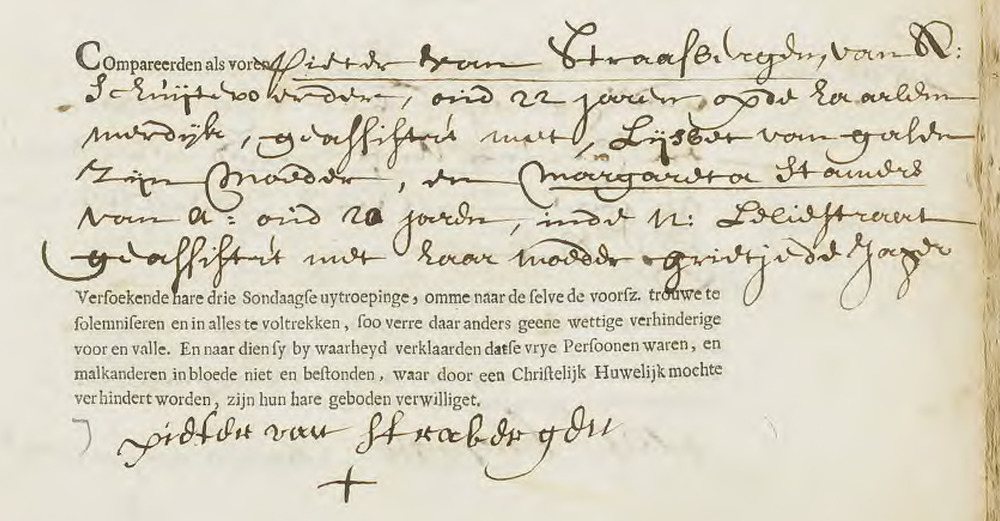 Compareerden als voren Pieter van Straasbergen, van A:
Schuijtevoerder, oud 22 jaren, op de haarlem
merdijk, geassisteert met, Lijsbet van galen
zijn Moeder, en Margareta Stamers
van A: oud 20 jaren, inde N: Leliestraet
geassisteert met haar moeder grietje de Jager
Versoekende hare drie Sondaagse uytroepinge, omme naar de selve de voorsz. trouwe te
solemniseren en in alles te voltrekken, soo verre daar anders geene wettige verhinderige
voor en valle. En naar dien sy by waarheyd verklaarden datse vrye Persoonen waren, en
malkanderen in bloede niet en bestonden, waar door een Christelijk Huwelijk mochte
verhindert worden, zijn hun hare geboden verwilliget.
pieter van strabergen